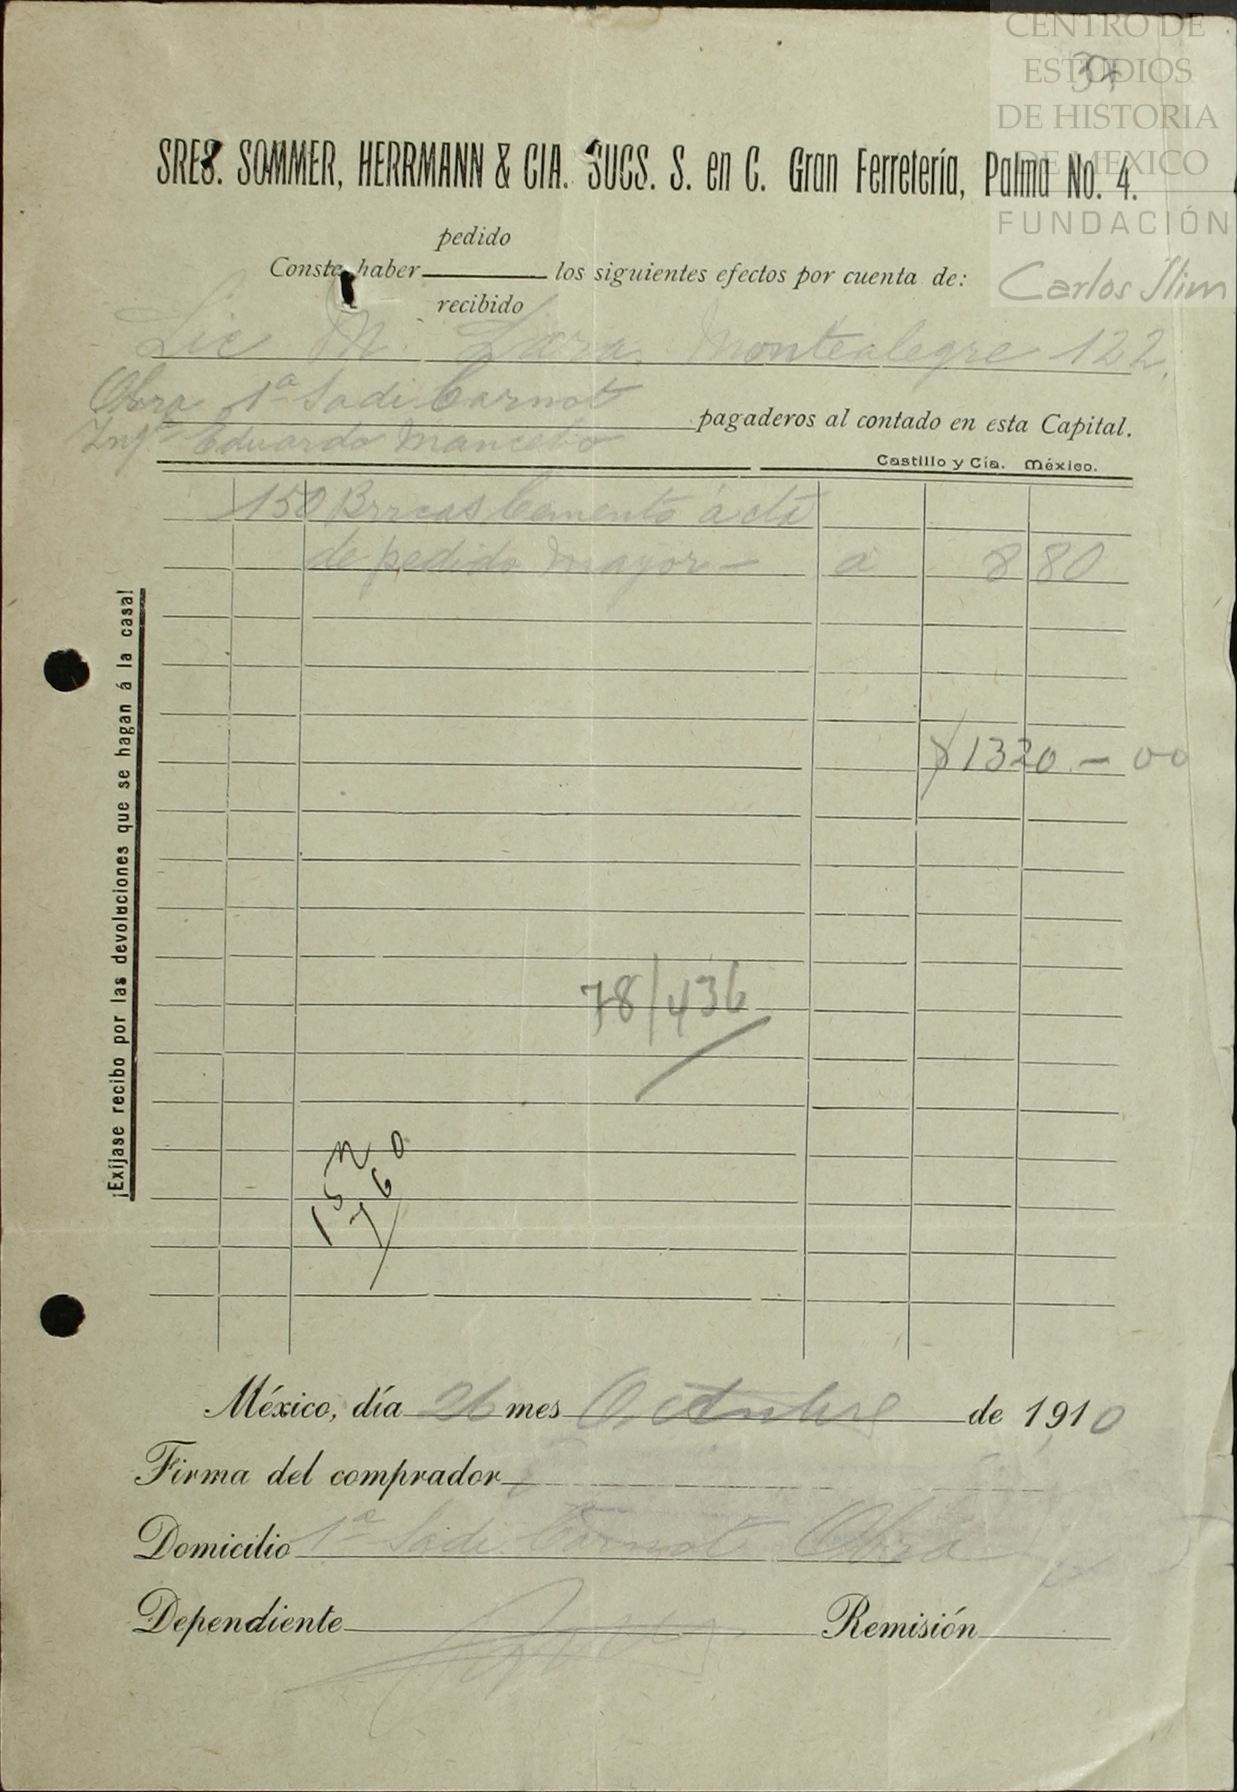 CENTRO DE
ESTUDIOS
DE HISTORIA
DE MEXICO
FUNDACIÓN
Carlos Slim
37
SRES. SOMMER, HERRMANN & CIA. SUCS. S. en C. Gran Ferretería, Palma No. 4.
pedido
Conste haber los siguientes efectos por cuenta de:
recibido
Lic M. Lara. Montealegre 122.
Obra 1a Sadi Carnot
pagaderos al contado en esta Capital.
Ingo Eduardo Mancebo
Castillo y Cía. México.
150 Brricas Cemento á cta
de pedido mayor - a 8 80
$1320.-00
78/436
152
760
¡Exíjase recibo por las devoluciones que se hagan á la casa!
México, día 26 mes Octubre de 1910
Firma del comprador
Domicilio 1a Sadi Carnot Obra
Dependiente Remisión